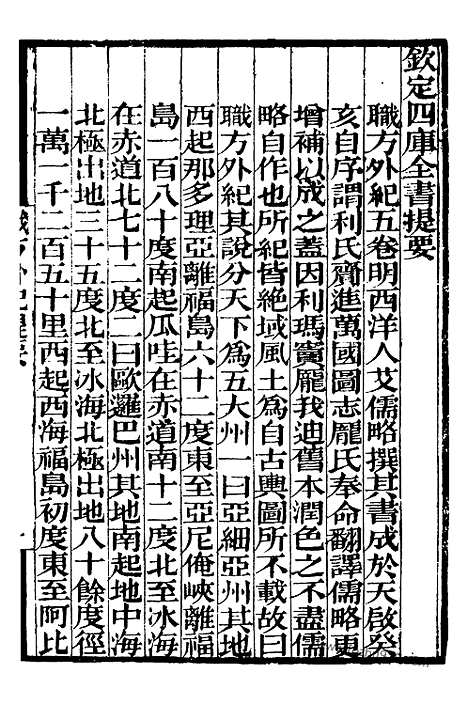 欽定四庫全書提要
職方外紀五卷明西洋人艾儒略撰其書成於天啟癸
亥自序謂利氏齎進萬國圖志龐氏奉命翻譯儒略更
增補以成之蓋因利瑪竇龐我迪舊本潤色之不盡儒
略自作也所紀皆絶域風土為自古輿圖所不載故曰
職方外紀其說分天下為五大州一曰亞細亞州其地
西起那多理亞離福島六十二度東至亞尼俺峽離福
島一百八十度南起瓜哇在赤道南十二度北至冰海
在赤道北七十二度二曰歐邏巴州其地南起地中海
北極出地三十五度北至冰海北極出地八十餘度徑
一萬一千二百五十里西起西海福島初度東至阿比